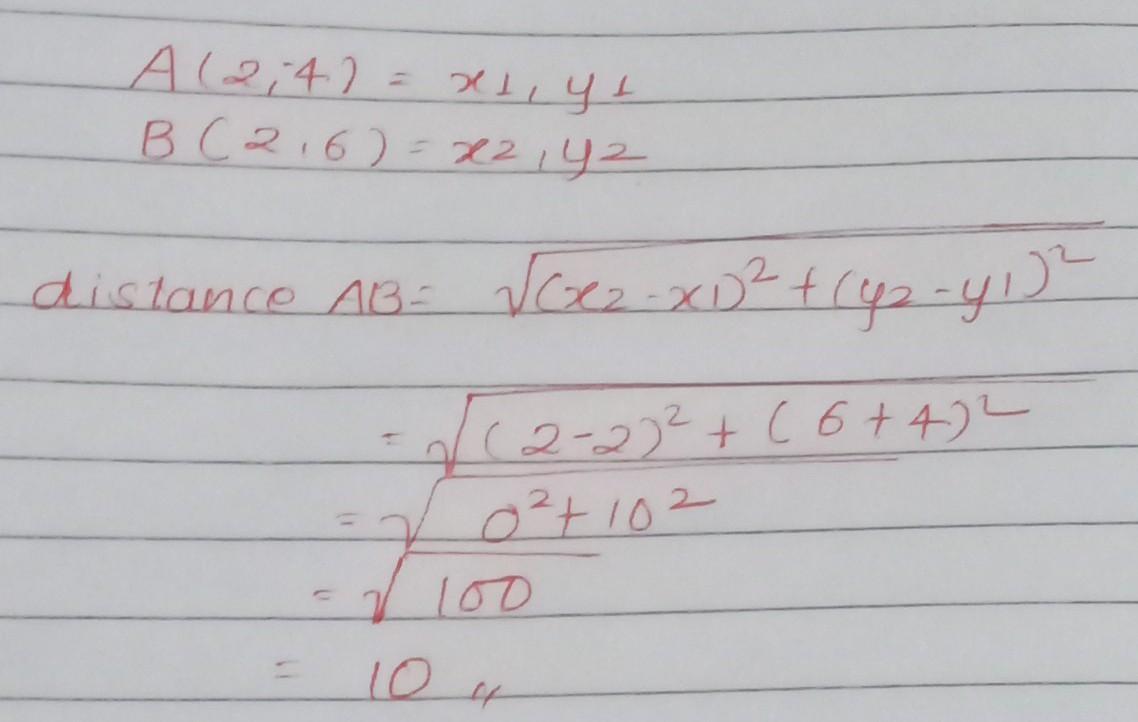 A(2,-4) = x1, y1
B(2,6) = x2, y2
distance AB = √(x2-x1)² + (y2-y1)²
= √(2-2)² + (6+4)²
= √0² + 10²
= √100
= 10 〃